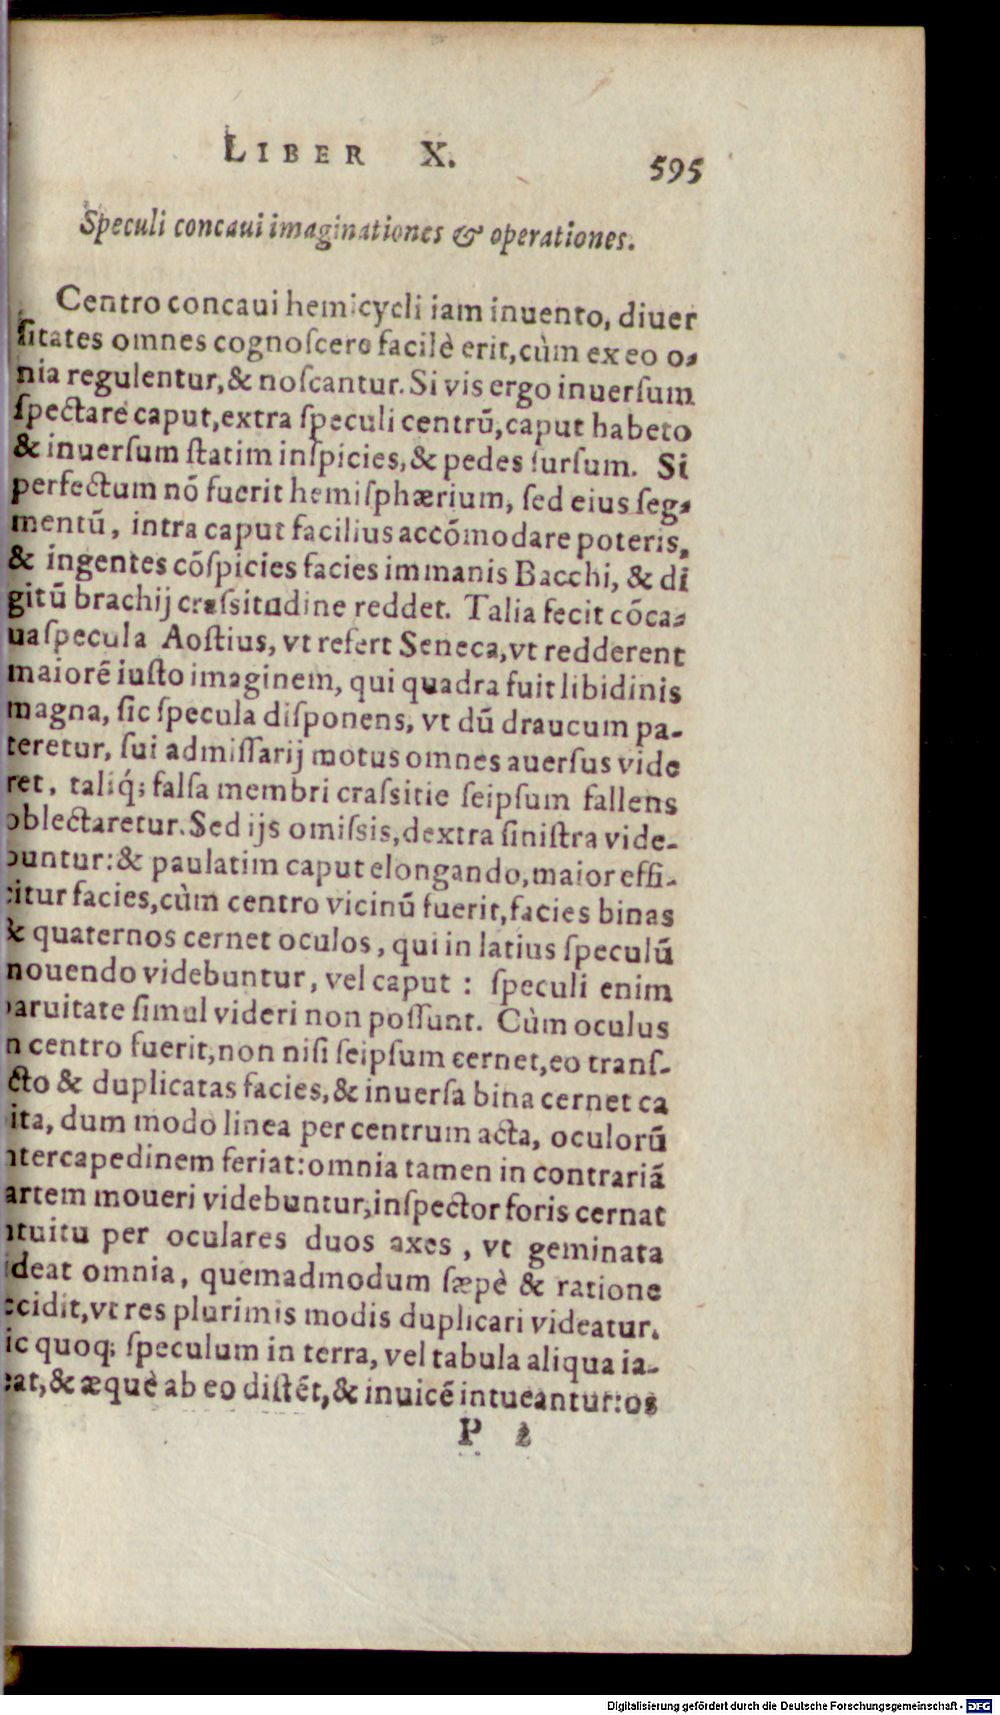 LIBER X. 595
Speculi concaui imaginationes & operationes.
Centro concaui hemicycli iam inuento, diuer
ſitates omnes cognoſcere facilè erit, cùm ex eo o-
nia regulentur, & noſcantur. Si vis ergo inuerſum
ſpectare caput, extra ſpeculi centrū, caput habeto
& inuerſum ſtatim inſpicies, & pedes ſurſum. Si
perfectum nō fuerit hemiſphærium, ſed eius ſeg-
mentū, intra caput facilius accōmodare poteris,
& ingentes cōſpicies facies immanis Bacchi, & di
gitū brachij craſsitudine reddet. Talia fecit cōca-
ua ſpecula Aoſtius, vt refert Seneca, vt redderent
maiorē iuſto imaginem, qui quadra fuit libidinis
magna, ſic ſpecula diſponens, vt dū draucum pa-
teretur, ſui admiſſarij motus omnes auerſus vide
ret, taliq́; falſa membri craſsitie ſeipſum fallens
oblectaretur. Sed ijs omiſsis, dextra ſiniſtra vide-
buntur: & paulatim caput elongando, maior effi-
citur facies, cùm centro vicinū fuerit, facies binas
& quaternos cernet oculos, qui in latius ſpeculū
mouendo videbuntur, vel caput : ſpeculi enim
paruitate ſimul videri non poſſunt. Cùm oculus
in centro fuerit, non niſi ſeipſum cernet, eo tranſ-
acto & duplicatas facies, & inuerſa bina cernet ca
pita, dum modo linea per centrum acta, oculorū
intercapedinem feriat: omnia tamen in contrariā
partem moueri videbuntur, inſpector foris cernat
intuitu per oculares duos axes, vt geminata
videat omnia, quemadmodum ſæpè & ratione
accidit, vt res plurimis modis duplicari videatur.
ſic quoq; ſpeculum in terra, vel tabula aliqua ia-
ceat, & æquè ab eo diſtēt, & inuicē intueantur: os
P 2
Digitalisierung gefördert durch die Deutsche Forschungsgemeinschaft - DFG